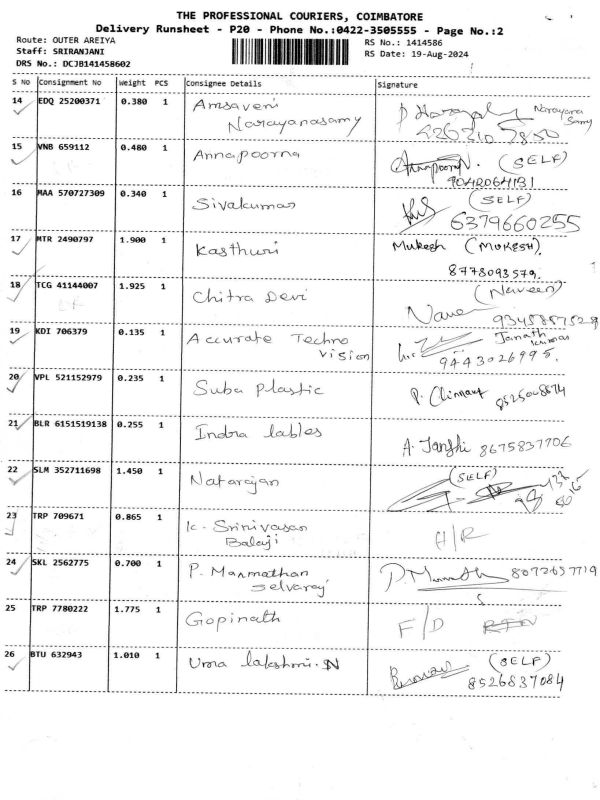 THE PROFESSIONAL COURIERS, COIMBATORE
Delivery Runsheet - P20 - Phone No.:0422-3505555 - Page No.:2
Route: OUTER AREIYA
RS No.: 1414586
Staff: SRIRANJANI
RS Date: 19-Aug-2024
DRS No.: DCJB141458602
S No Consignment No Weight PCS Consignee Details Signature
14 EDQ 25200371 0.380 1 Amsaveni Narayana
Narayanasamy Samy
15 VNB 659112 0.480 1 Annapoorna Annapoorna. (SELF)
9042064131
16 MAA 570727309 0.340 1 Sivakumar (SELF)
6379660255
17 MTR 2490797 1.900 1 Kasthuri Mukesh (MUKESH).
8778093579.
18 TCG 41144007 1.925 1 Chitra Devi (Naveen)
19 KDI 706379 0.135 1 Accurate Techno
Vision 9443026995.
20 VPL 521152979 0.235 1 Suba Plastic P.
21 BLR 6151519138 0.255 1 Indra lables A. 8675837706
22 SLM 352711698 1.450 1 Natarajan (SELF)
23 TRP 709671 0.865 1 K. Srinivasan H/R
Balaji
24 SKL 2562775 0.700 1 P. Manmathan 8072657719
Selvaraj
25 TRP 7780222 1.775 1 Gopinath F/D
26 BTU 632943 1.010 1 Uma lakshmi. N (SELF)
8526837084